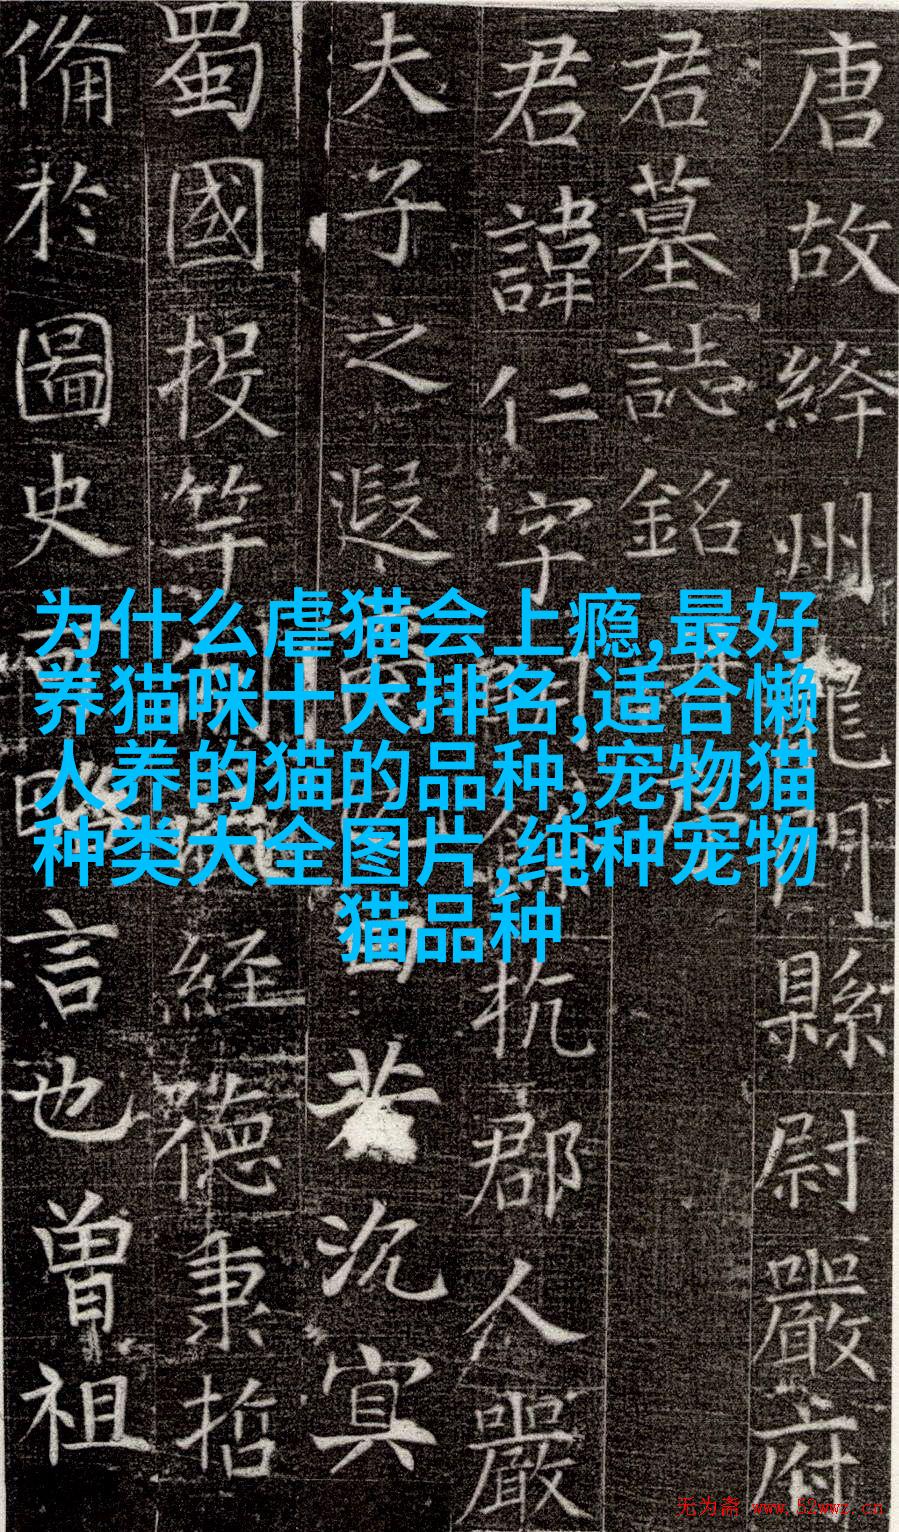 唐故絳州龍門縣尉嚴府
君墓誌銘
君諱仁字明杭郡人嚴
夫子之遐裔若沉寘
蜀國投竿經德秉哲
備於圖史言也曾祖
为什么虐猫会上瘾,最好
养猫咪十大排名,适合懒
人养的猫的品种,宠物猫
种类大全图片,纯种宠物
猫品种
无为斋 www.52wwz.cn